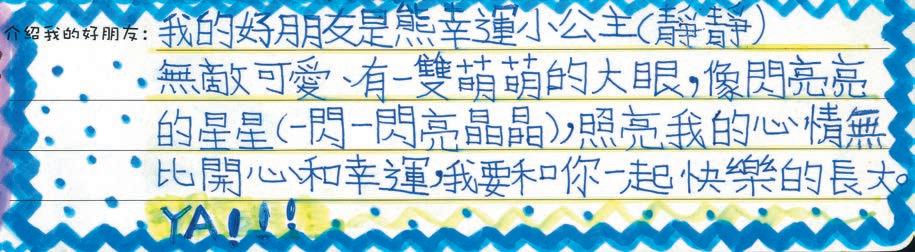 介紹我的好朋友：我的好朋友是熊幸運小公主(靜靜)
無敵可愛、有一雙萌萌的大眼，像閃亮亮
的星星(一閃一閃亮晶晶)，照亮我的心情無
比開心和幸運，我要和你一起快樂的長大。
YA!!!